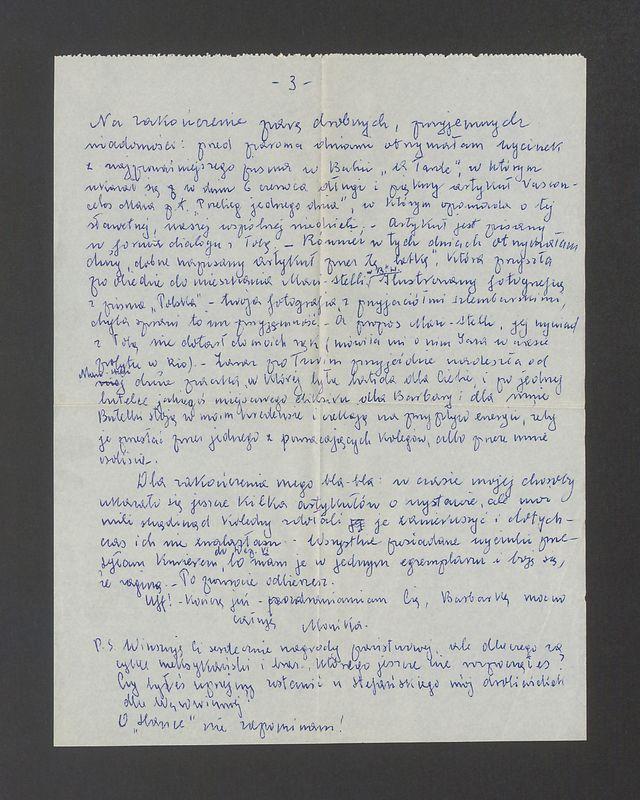 - 3 -
Na zakończenie parę drobnych, przyjemnych
wiadomości: przed paroma dniami otrzymałam wycinek
z najpoważniejszego pisma w Bahii „A Tarde", w którym
ukazał się w dniu 6 czerwca długi i piękny artykuł Vascon-
celos Maia p.t. „ jednego dnia", w którym opowiada o tej
sławetnej, naszej wspólnej niedzieli. - Artykuł jest pisany
w formie dialogu z Tobą. - Również w tych dniach otrzymałam
drugi, dobrze napisany artykuł przez tę , która przyszła
po obiedzie do mieszkania Mari-Stelli, Ilustrowany fotografią
z pisma „Polska" - twoja fotografia z przyjaciółmi ,
chyba sprawi to im przyjemność. - A propos Mari-Stelli, jej wywiad
z Tobą nie dotarł do moich rąk (mówiła mi o nim Sana w czasie
pobytu w Rio). - Zaraz po Twoim przyjeździe nadeszła od
duża paczka, w której była batida dla Ciebie, i po jednej
butelce jakiegoś miejscowego dla Barbary i dla mnie
Butelki stoją w moim kredensie i czekają na przypływ energii, żeby
je przesłać przez jednego z powracających kolegów, albo przeze mnie
osobiście.
Dla zakończenia mego bla-bla: w czasie mojej choroby
ukazało się jeszcze kilka artykułów o wystawie, ale moi
mili skądinąd koledzy zdołali je zawieruszyć i dotych-
czas ich nie znalazłam. - Wszystkie posiadane wycinki prze-
syłam kurierem, bo mam je w jednym egzemplarzu i boję się,
że zaginą. - Po powrocie odbierzesz.
Uff! - Kończę już - pozdrawiam Cię, Barbarkę mocno
całuję
Monika.
P.S. Winszuję Ci serdecznie nagrody państwowej, ale dlaczego za
cykl meksykański i braz., którego jeszcze nie rozpocząłeś?
Czy byłeś uprzejmy zostawić u Stefańskiego mój drobiazdek
dla ?
O „Hance" nie zapominam!